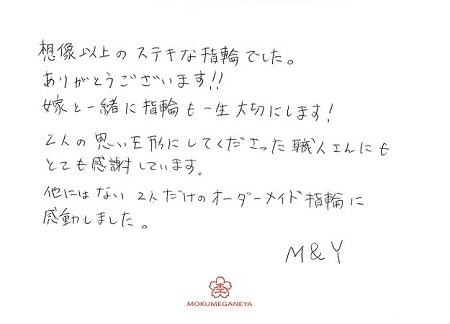 想像以上の ステキな指輪でした。
ありがとうございます!!
嫁と一緒に指輪も一生大切にします!
2人の思いを形にしてくださった職人さんにも
とても感謝しています。
他にはない 2人だけのオーダーメイド指輪に
感動しました。
M&Y
MOKUMEGANEYA